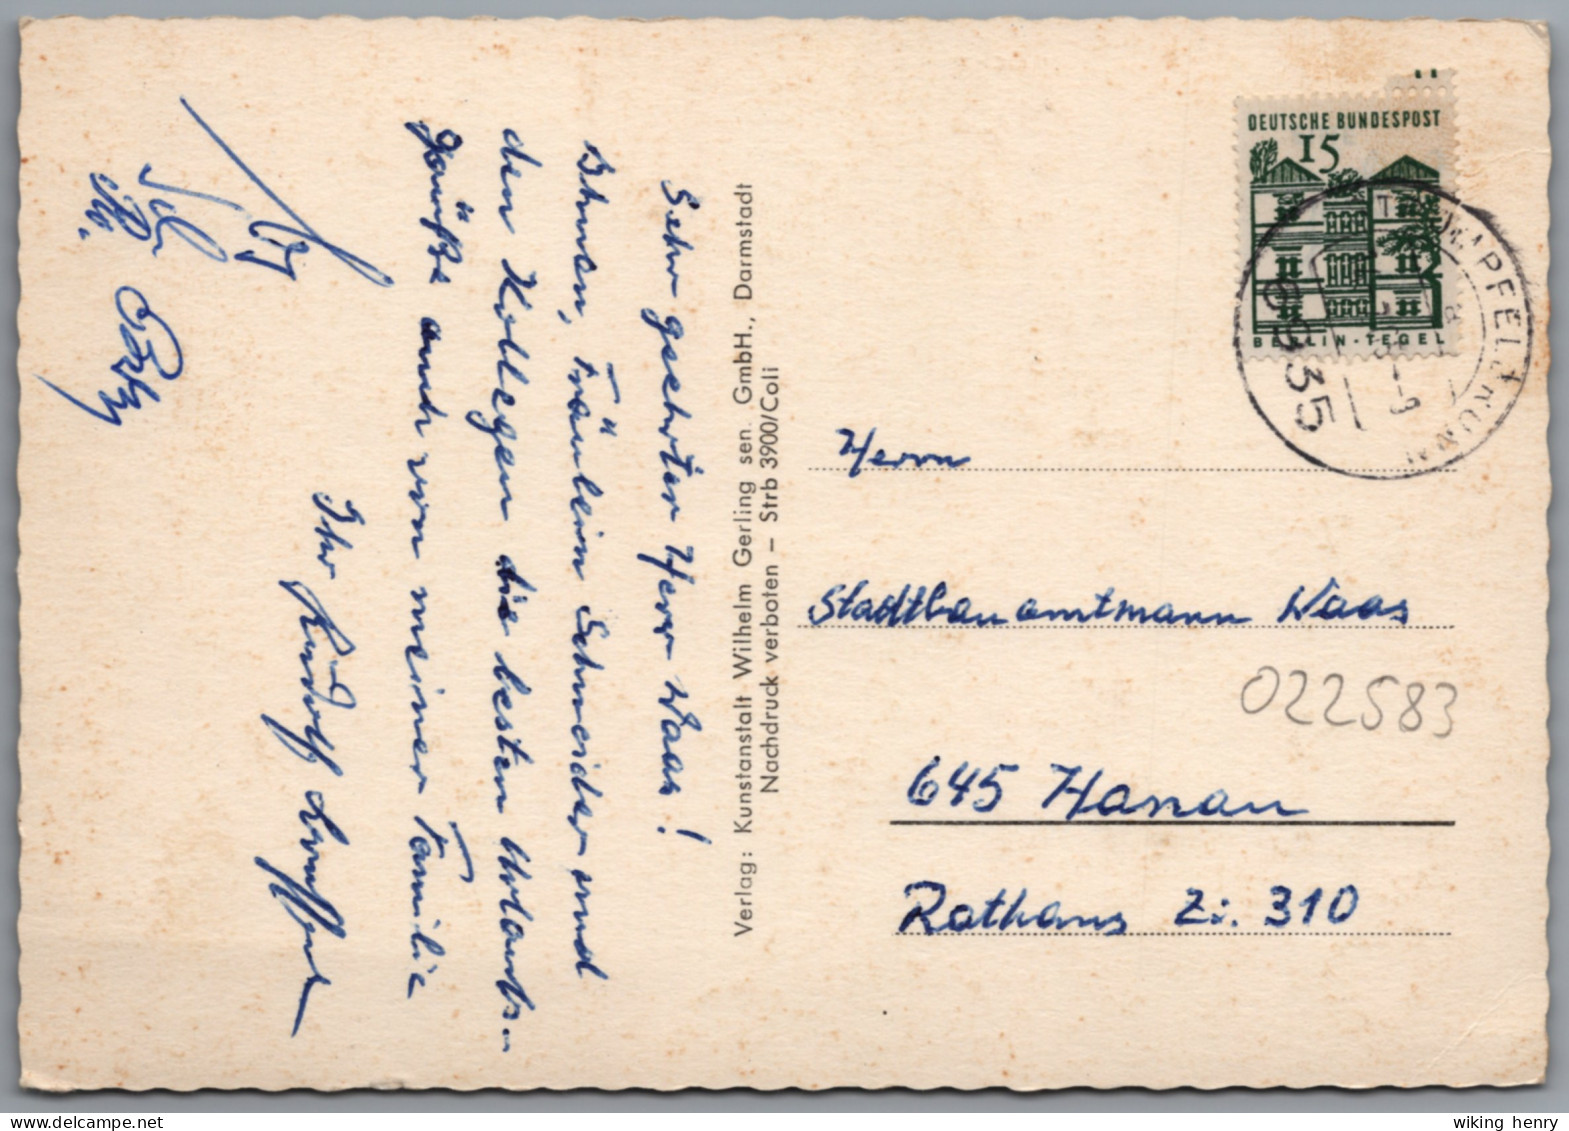 Sehr geehrter Herr Waas!
Ihnen, Fräulein Schneider und
den Kollegen die besten Urlaubs-
grüße auch von meiner Familie
Ihr Rudolf
Verlag: Kunstanstalt Wilhelm Gerling sen. GmbH., Darmstadt
Nachdruck verboten – Strb 3900/Coli
DEUTSCHE BUNDESPOST
15
BERLIN-TEGEL
6935
Herrn
Stadtbauamtmann Waas
022583
645 Hanau
Rathaus Zi. 310
wiking henry